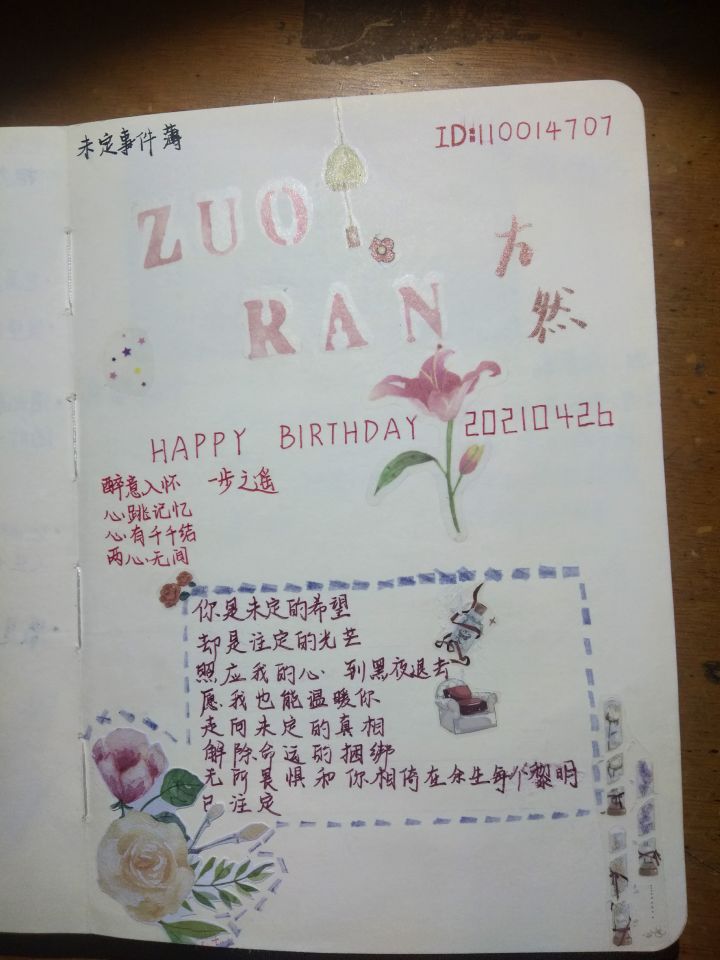 未定事件薄
ID:110014707
ZUO
RAN
左然
HAPPY BIRTHDAY 20210426
醉意入怀 一步之遥
心跳记忆
心有千千结
两心无间
你是未定的希望
却是注定的光芒
照应我的心 到黑夜退去
愿我也能温暖你
走向未定的真相
解除命运的捆绑
无所畏惧和你相倚在余生每个黎明
已注定